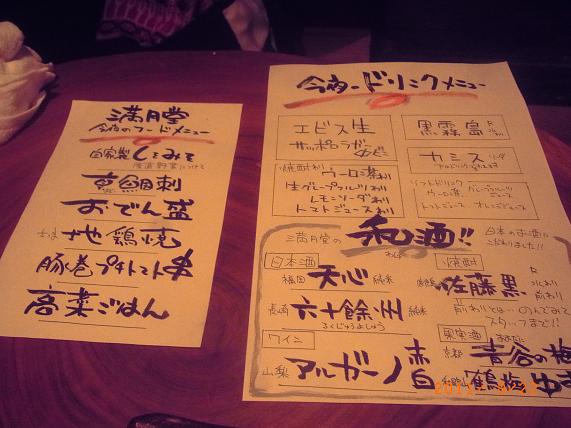 満月堂
今宵のフードメニュー
自家製しそみそ
真鯛刺
おでん盛
地鶏焼
豚巻プチトマト串
高菜ごはん
今宵ードリンクメニュー
エビス生
サッポロラガー
焼酎割り
ウーロン茶わり
生グレープフルーツわり
レモンソーダわり
トマトジュースわり
黒霧島
カシス ソーダ
ソフトドリンク
ウーロン茶
トマトジュース オレンジジュース
満月堂の 和酒!!
日本のお酒に
こだわりました!!
日本酒
福岡 天心 純米
長崎 六十餘州 純米
ろくじゅうよしゅう
ワイン
山梨 アルガーノ 赤 白
焼酎
佐藤黒
水わり
前わり
前わりとは…のんでみて
スタッフまで!!
果実酒
京都 青谷の梅
鶴梅 ゆず